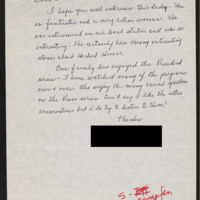 I hope you will interview this lady. She
is fantastic and a very active woman. She
was interviewed on our local station and was so
interesting. She certainly has many interesting
stories about Herbert Hoover.
Our family has enjoyed the President
series - I have watched many of the programs
over & over. We enjoy the many varied guests
on the Press series. Can't say I like the ultra
conservatives but I do try to listen to them!
Thanks
5-